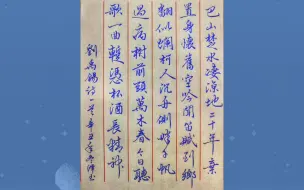 巴山楚水凄涼地二十年棄
置身懷舊空吟聞笛賦到鄉
翻似爛柯人沉舟側畔千帆
過病樹前頭萬木春今日聽
歌一曲暫憑杯酒長精神
劉禹錫詩一首辛丑年